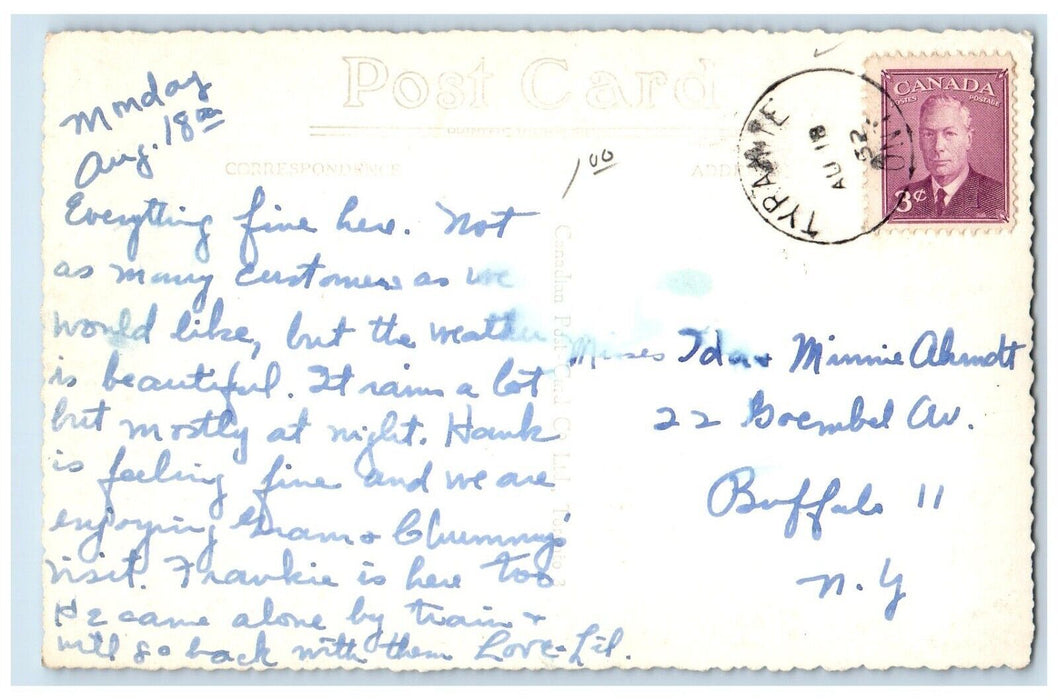 Post Card
CORRESPONDENCE
Monday
Aug. 18th
Everything fine here. Not
as many customers as we
would like, but the weather
is beautiful. It rains a lot
but mostly at night. Hank
is feeling fine and we are
enjoying Gram & Chummy's
visit. Frankie is here too
He came alone by train &
will go back with them Love-Lil.
1.00
Canadian Post Card Co. Ltd., Toronto 2
TYRANITE
AU 18
52
ONT.
CANADA
POSTES POSTAGE
3¢
Misses Ida & Minnie Ahrndt
22 Goembel Av.
Buffalo 11
N.Y